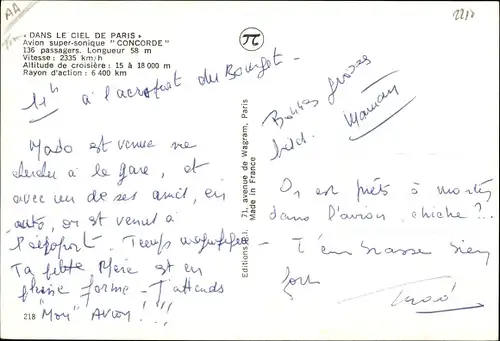 AA
2210
« DANS LE CIEL DE PARIS »
Avion super-sonique "CONCORDE"
136 passagers. Longueur 58 m
Vitesse : 2335 km/h
Altitude de croisière : 15 à 18 000 m
Rayon d'action : 6 400 km
11h à l'aéroport du Bourget -
Mado est venue me
chercher à la gare, et
avec un de ses amis, en
auto, on est venus à
l'aéroport. Temps magnifique -
Ta petite Mère est en
pleine forme - J'attends
"Mon" AVION !''!!
218
Editions P.I. 71, avenue de Wagram, Paris
Made in France
Bonnes grosses
bises. Maman
On est prêts à monter
dans l'avion, chiche ?...
T'embrasse bien
fort